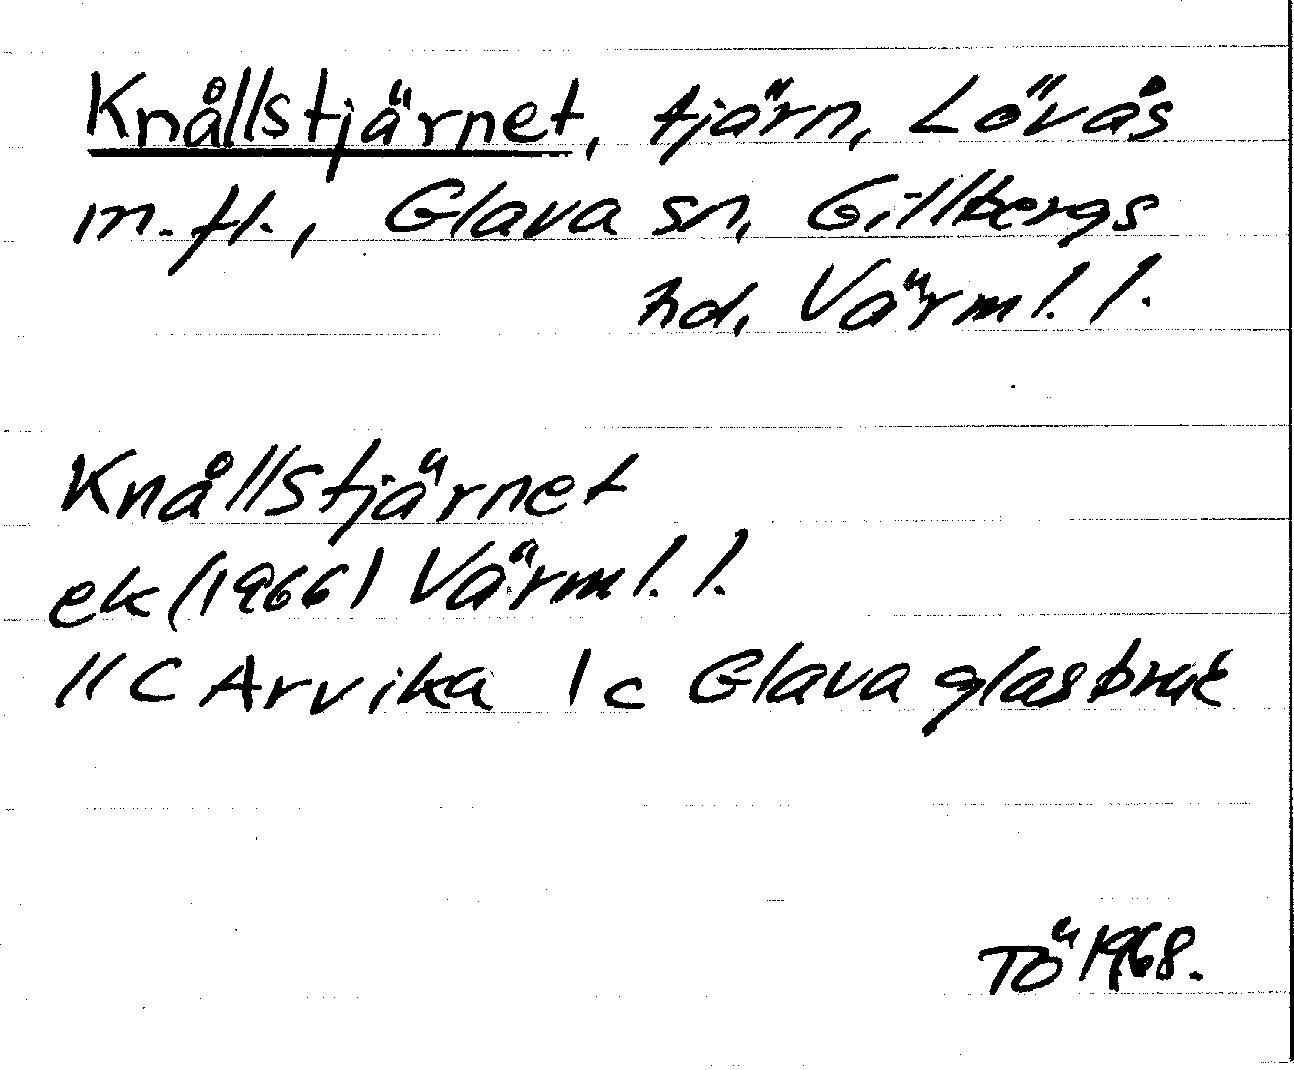 Knållstjärnet, tjärn, Lövås
m.fl., Glava sn, Gillbergs
hd, Värml. l.
Knållstjärnet
ek (1966) Värml. l.
11C Arvika 1c Glava glasbruk
TÖ 1968.